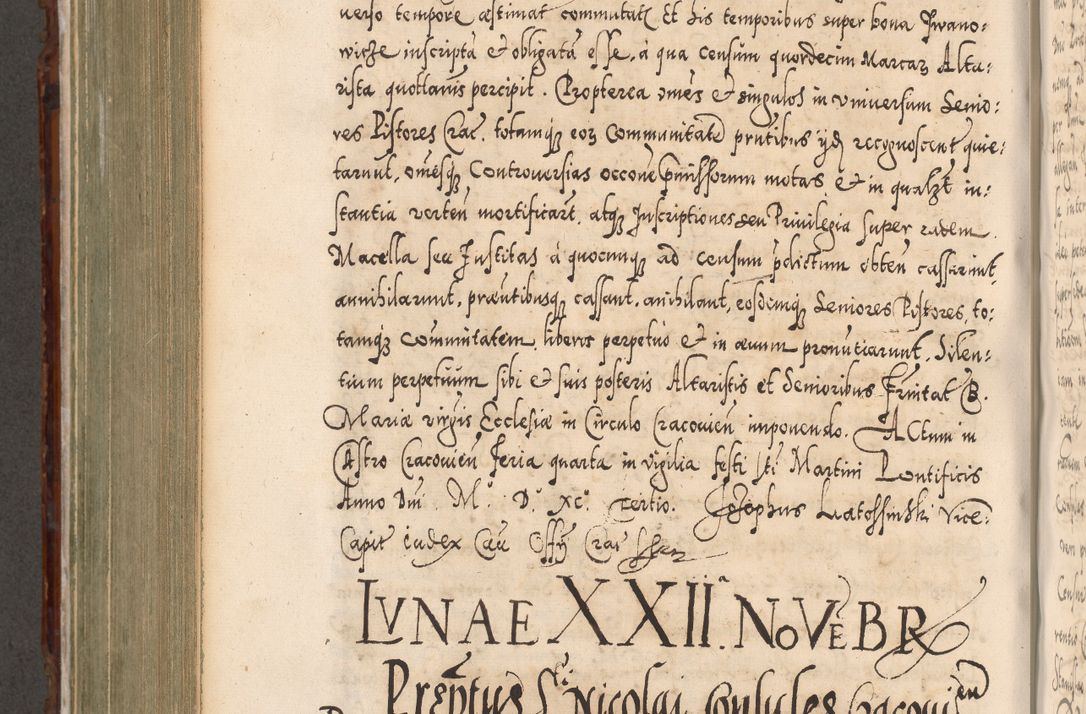 verso tempore æstimat commutatæ Et his temporibus super bona Jwano:
wicze inscripta & obligata esse, a qua censum quordecim Marcaȝ Alta:
rista quotlanis percipit. Propterea omes & singulos in vniuersum Senio:
res Pistores Crac. totamqȝ eoȝ Communitatē pñtibus ijdȩ recognoscent quie:
tarunt, omesqȝ Controuersias occone pmissorum motas & in qualȝt in:
stantia verten mortificarūt, atqȝ Inscriptiones seu Priuilegia super eadem
Macella seu Institas à quocunqȝ ad censum pdictum obten cassarint
annihilarunt, præntibusqȝ cassant, anihilant, eosdemqȝ Seniores Pistores, to:
tamqȝ communitatem, liberos perpetuò & in æuum pronūtiarunt, Silen:
tium perpetuum sibi & suis posteris Altaristis et Senioribus Frnitat B.
Mariæ virgis Ecclesiæ in Circulo Cracouien imponendo. ACtum in
Castro Cracouien Feria quarta in vigilia festi sti Martini Pontificis
Anno Dni M° D° XC° Tertio. Josephus Latossinski Vice:
Capit Iudex Cau Offy Crac ssrr
LVNAE XXII.ᵃ NOVĒBR
Prēptus Sti Nicolai consules Cracouien